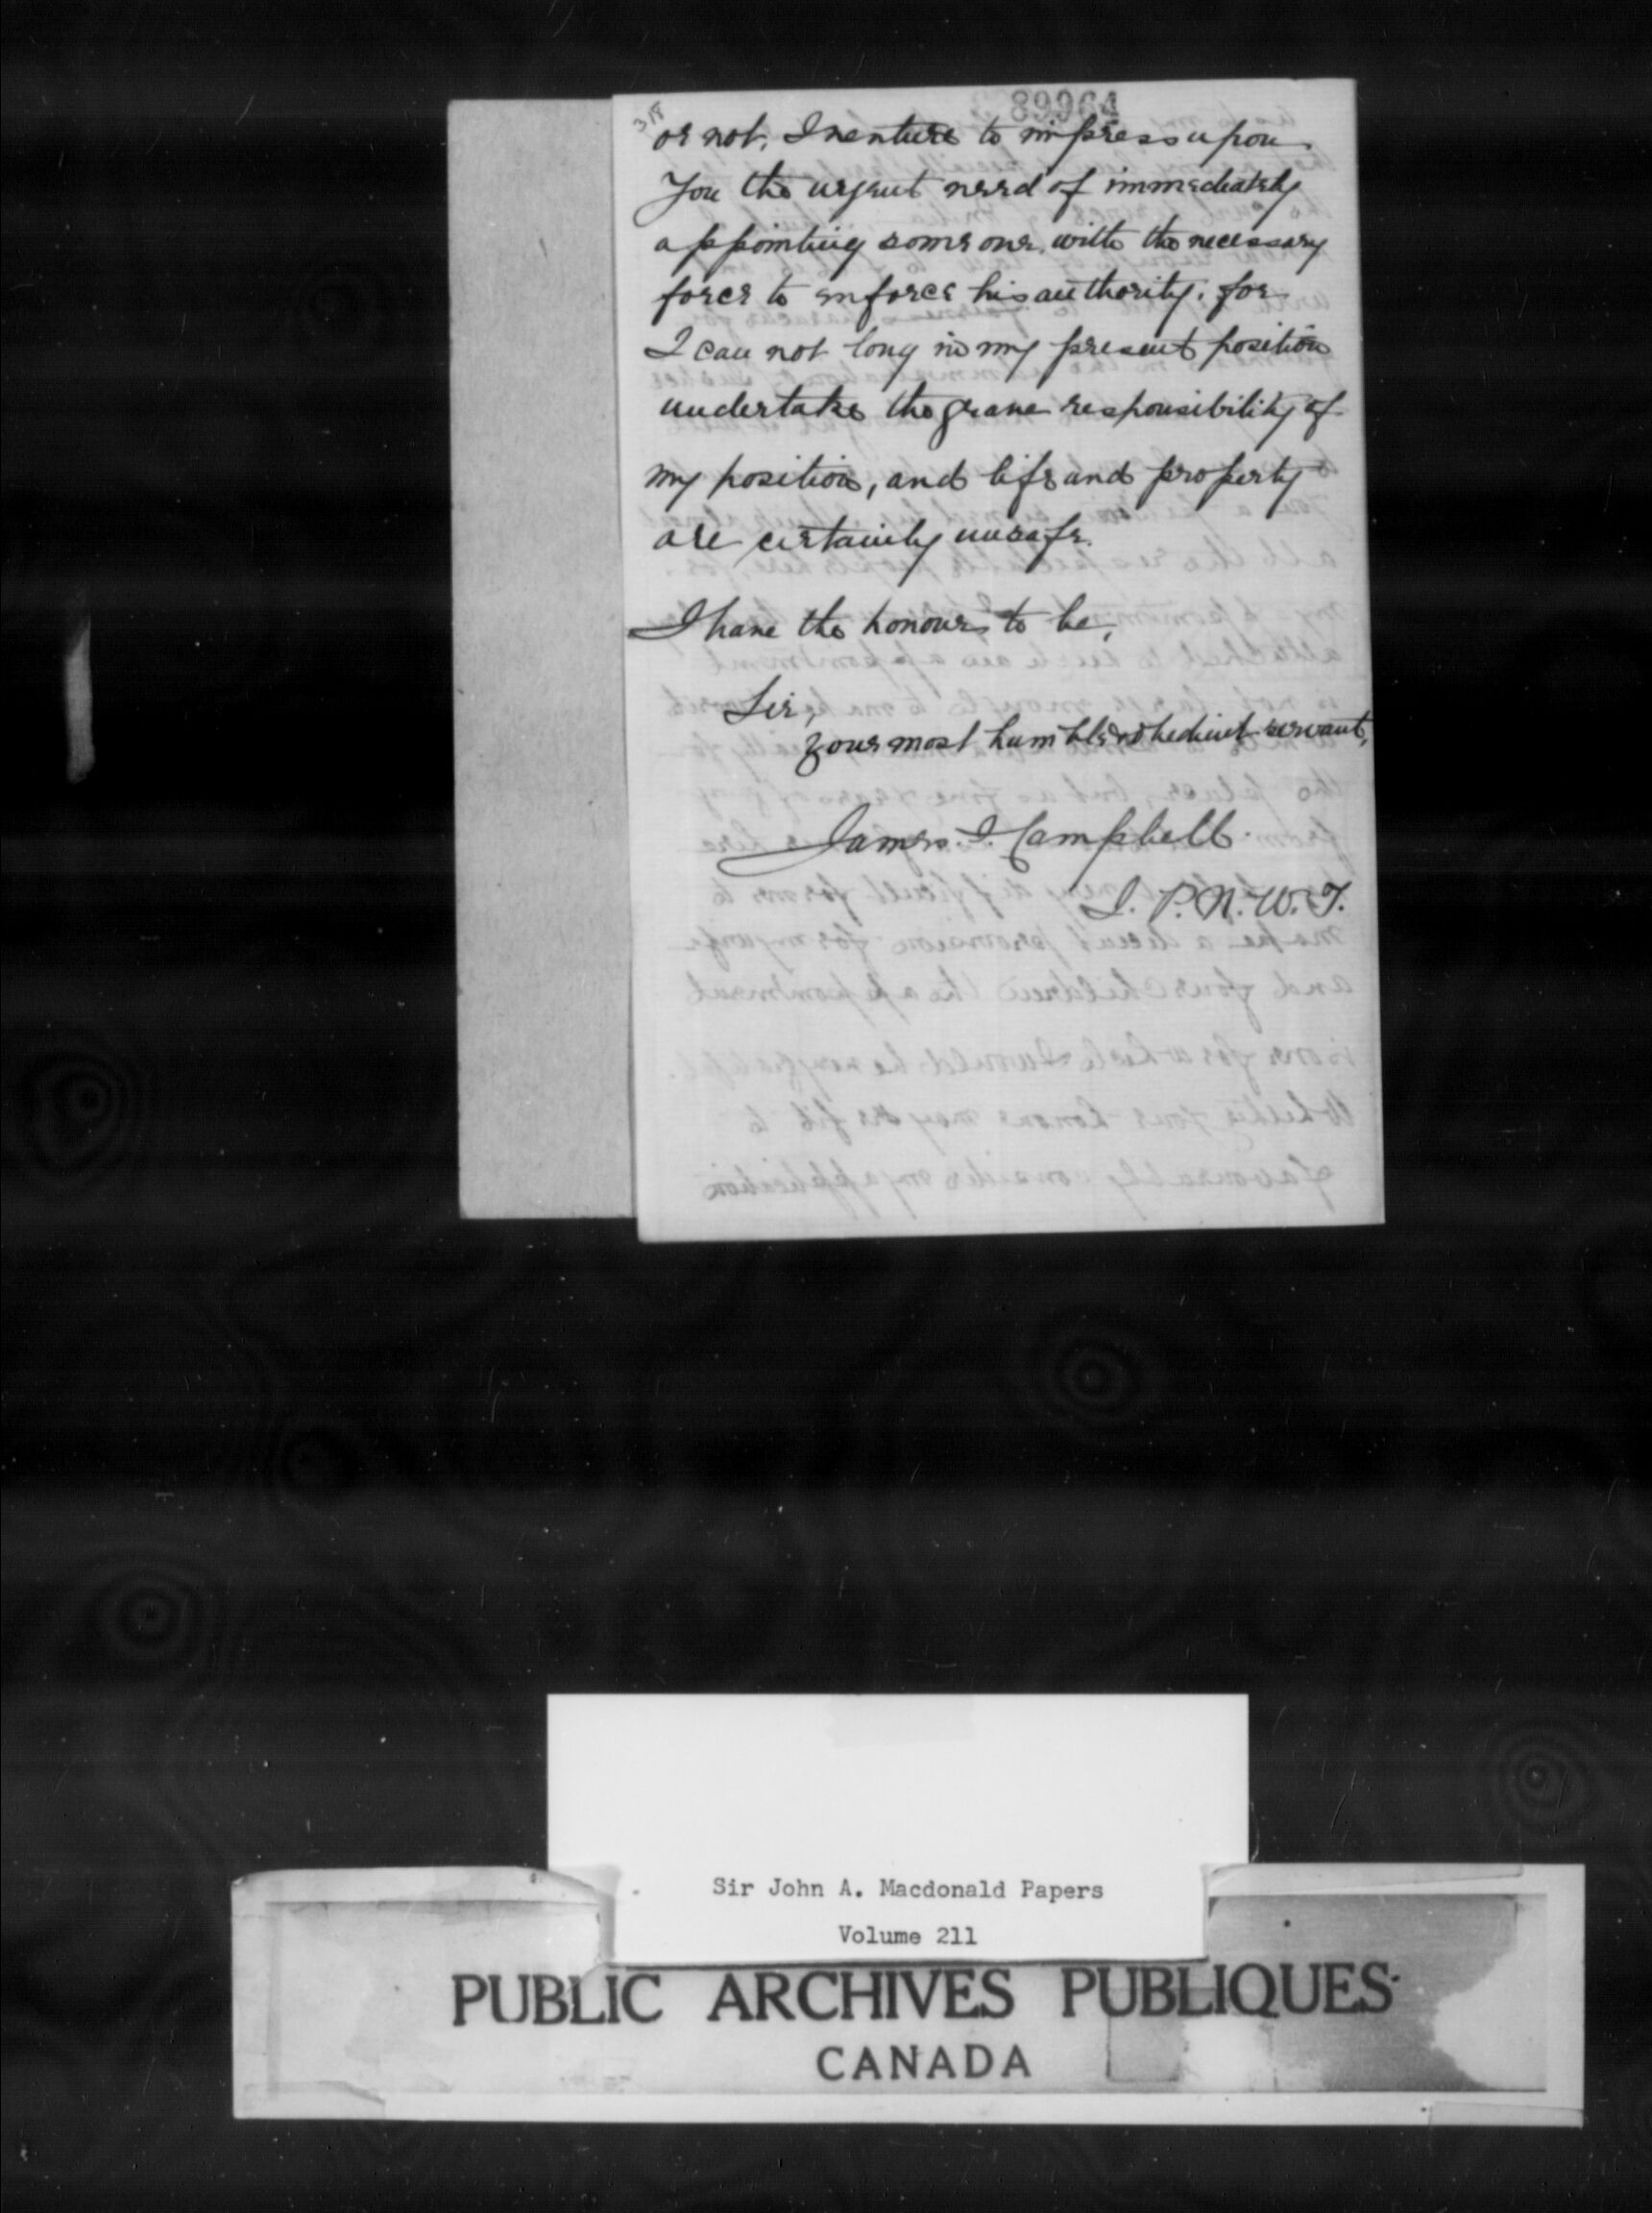 89964
318
or not, I venture to impress upon
You the urgent need of immediately
appointing some one, with the necessary
force to enforce his authority, for
I can not long in my present position
undertake the grave responsibility of
my position, and life and property
are certainly unsafe.
I have the honour to be,
Sir,
your most humble & obedient servant,
James. I. Campbell.
J. P. N. W. T.
Sir John A. Macdonald Papers
Volume 211
PUBLIC ARCHIVES PUBLIQUES
CANADA